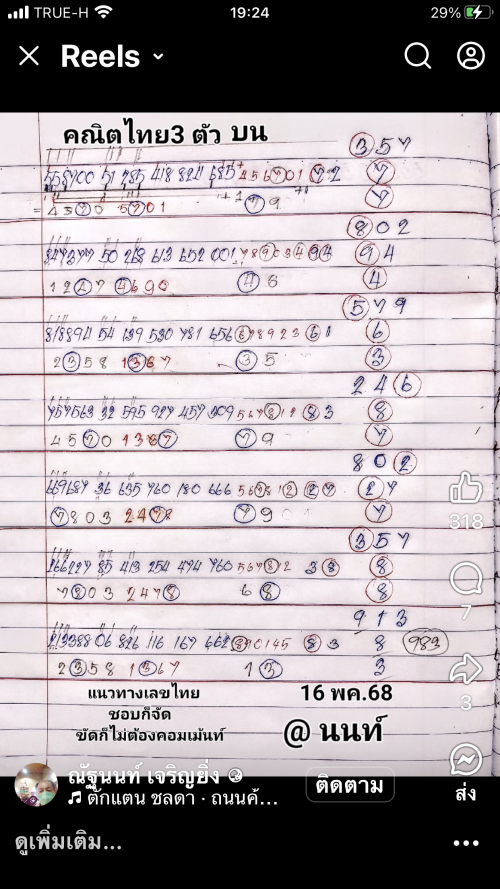 TRUE-H 19:24 29%
Reels
คณิตไทย3 ตัว บน
357
558700 51 285 418 824 685 4 5 6 7 0 1 7 2 7
4 5 7 0 5 7 0 1 7 9 7
802
50 268 613 652 001 7 8 9 0 3 4 9 4 9 4
4 6 4
579
818894 54 139 530 781 656 6 7 8 9 2 3 6 1 6
2 3 5 8 1 3 6 7 3 5 3
246
757563 32 595 927 457 309 5 6 7 8 1 2 8 3 8
4 5 7 0 1 3 8 7 7 9 7
802
669687 36 635 760 180 666 5 6 7 8 1 2 2 7 2 7
7 8 0 3 2 4 7 8 7 9 7
318
357
166227 85 413 254 474 760 5 6 7 8 1 2 3 8 8
7 8 0 3 2 4 7 8 6 8 8
7
913
213388 06 826 116 167 662 8 9 0 1 4 5 8 3 8 983
2 3 5 8 1 3 6 7 1 3 3
3
แนวทางเลขไทย 16 พค.68
ชอบก็จัด
ขัดก็ไม่ต้องคอมเม้นท์ @ นนท์
ณัฐนนท์ เจริญยิ่ง
ติดตาม
ตั๊กแตน ชลดา · ถนนค้...
ส่ง
ดูเพิ่มเติม...